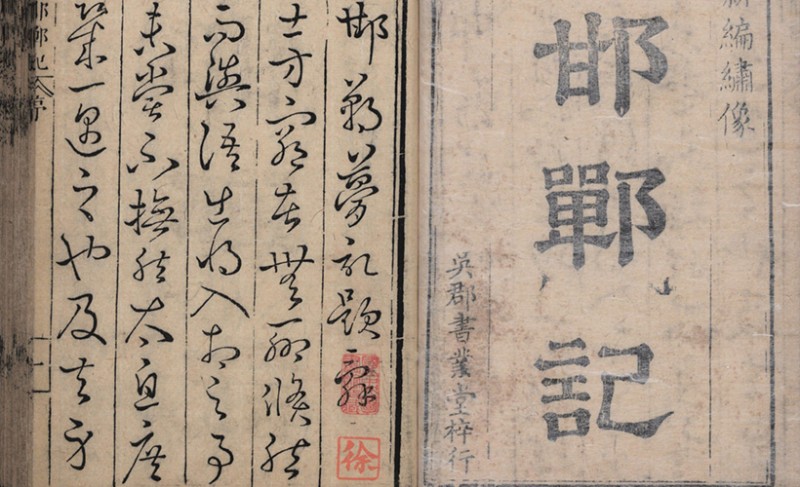 新編繡像
邯鄲記
吳郡書業堂梓行
邯鄲夢記題辭
徐
士方窮苦無聊倏然
而與語出將入相之事
未嘗不憮然太息庶
幾一遇之也及夫身
邯鄲記